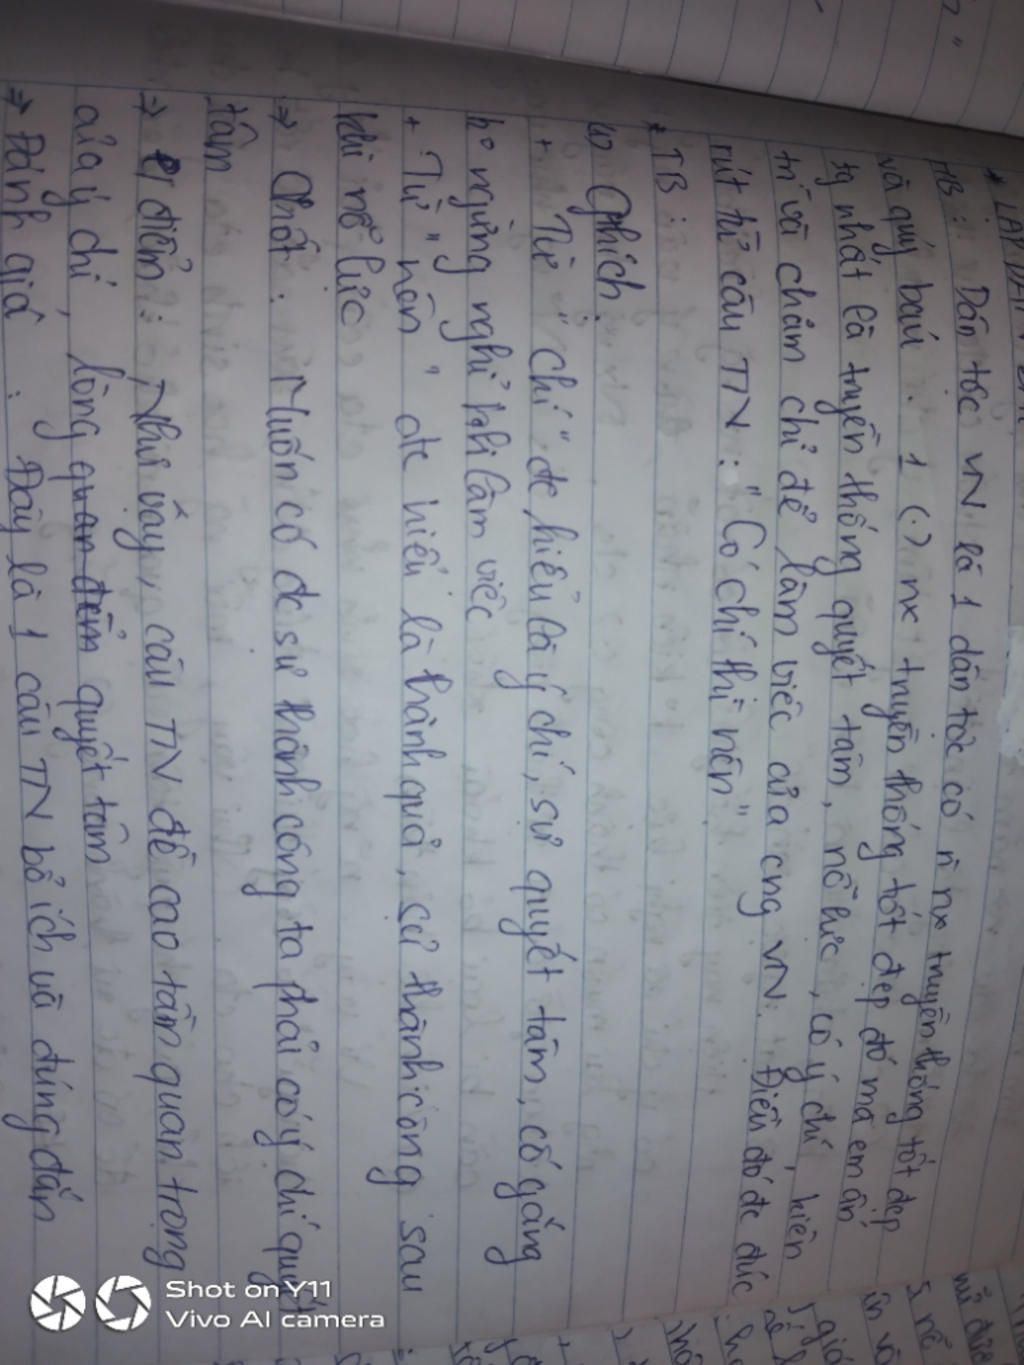 * LẬP DÀN
MB : Dân tộc VN là 1 dân tộc có n` nx truyền thống tốt đẹp
và quý báu. 1 (.) nx truyền thống tốt đẹp đó mà em ấn
tg nhất là truyền thống quyết tâm, nỗ lực, có ý chí, kiên
trì và chăm chỉ để làm việc của cng VN. Điều đó đc đúc
rút từ câu TN : "Có chí thì nên"
* TB
Gthích :
+ Từ " chí " đc hiểu là ý chí, sự quyết tâm, cố gắng
ko ngừng nghỉ khi làm việc
+ Từ " nên " đc hiểu là thành quả, sự thành công sau
khi nỗ lực
=> Chốt : Muốn có đc sự thành công ta phải có ý chí quyết
tâm
=> điểm : Như vậy, câu TN đề cao tầm quan trọng
của ý chí, lòng quan điểm quyết tâm
=> Đánh giá : Đây là 1 câu TN bổ ích và đúng đắn
Shot on Y11
Vivo AI camera